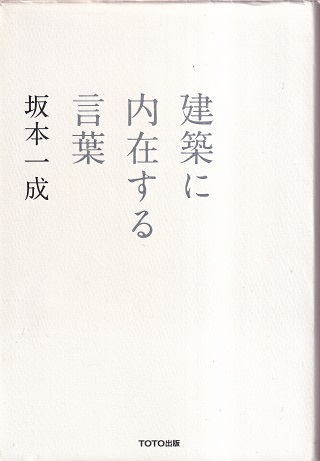 建築に
内在する
言葉
坂本一成
TOTO出版